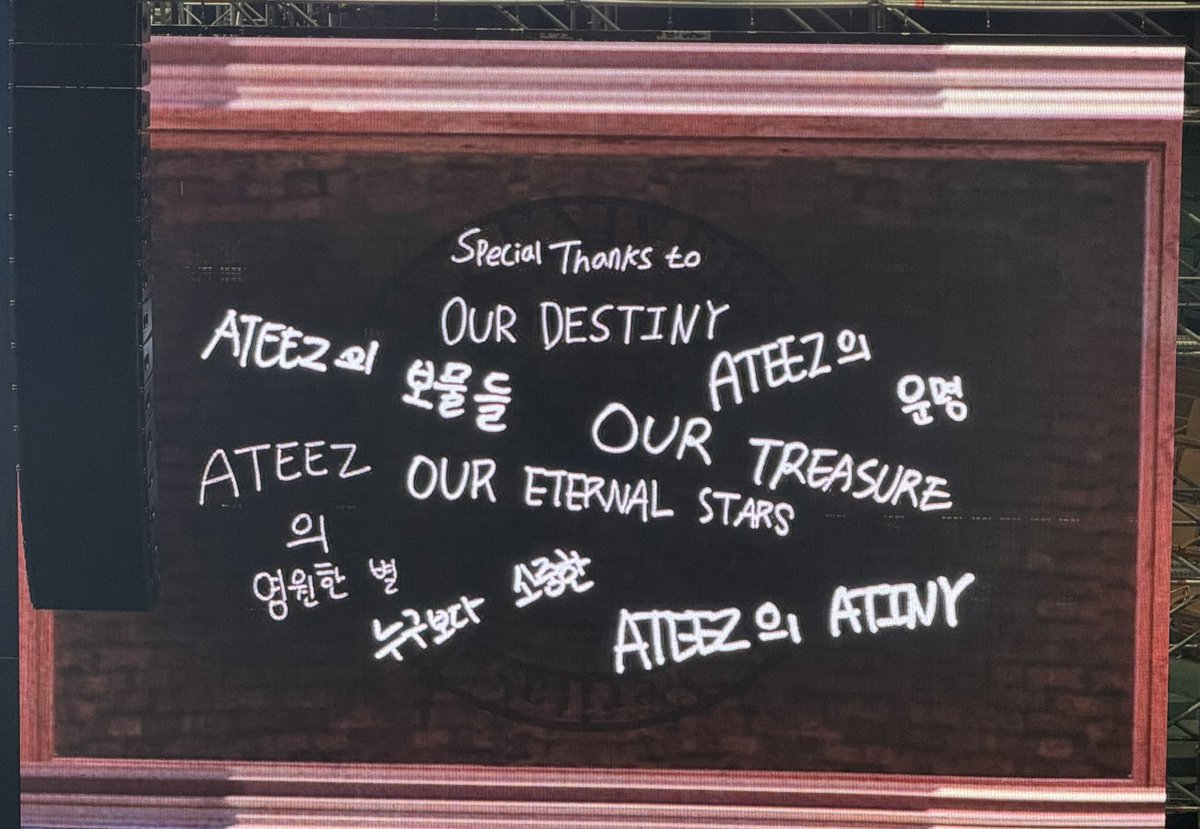 Special Thanks to
OUR DESTINY
ATEEZ의 보물들
ATEEZ의 운명
OUR TREASURE
ATEEZ의 영원한 별
OUR ETERNAL STARS
누구보다 소중한
ATEEZ의 ATINY